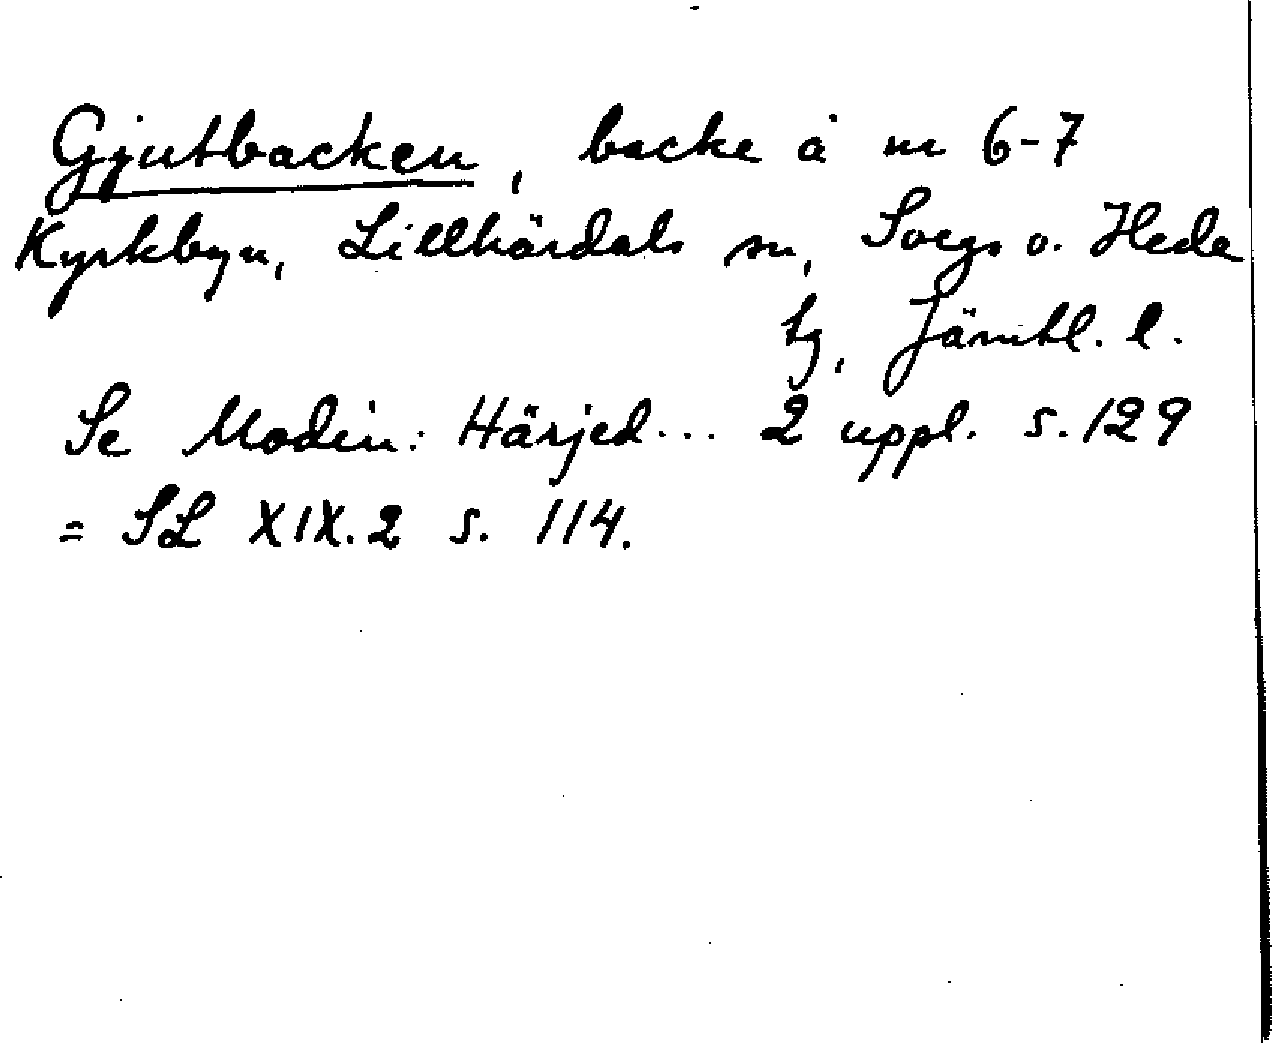 Gjutbacken, backe å nr 6-7
Kyrkbyn, Lillhärdals sn, Svegs o. Hede
tg, Jämtl. l.
Se Modin: Härjed... 2 uppl. s. 129
= SL XIX.2 s. 114.